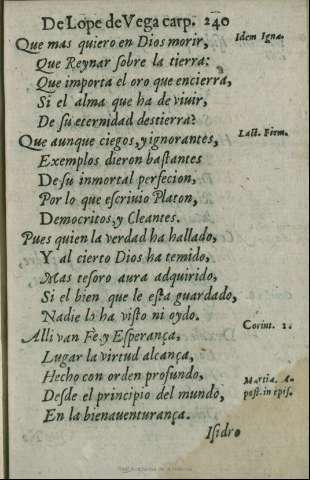 De Lope de Vega carp. 240
Que mas quiero en Dios morir,
Idem Igna.
Que Reynar sobre la tierra:
Que importa el oro que encierra,
Si el alma que ha de viuir,
De su eternidad destierra?
Que aunque ciegos, y ignorantes,
Lact. Firm.
Exemplos dieron bastantes
De su inmortal perfecion,
Por lo que escriuio Platon,
Democritos, y Cleantes.
Pues quien la verdad ha hallado,
Y al cierto Dios ha temido,
Mas tesoro aura adquirido,
Si el bien que le esta guardado,
Nadie lo ha visto ni oydo.
Corint. 2.
Alli van Fe, y Esperança,
Lugar la virtud alcança,
Hecho con orden profundo,
Martia. A-
Desde el principio del mundo,
post. in epis.
En la bienauenturança.
Isidro